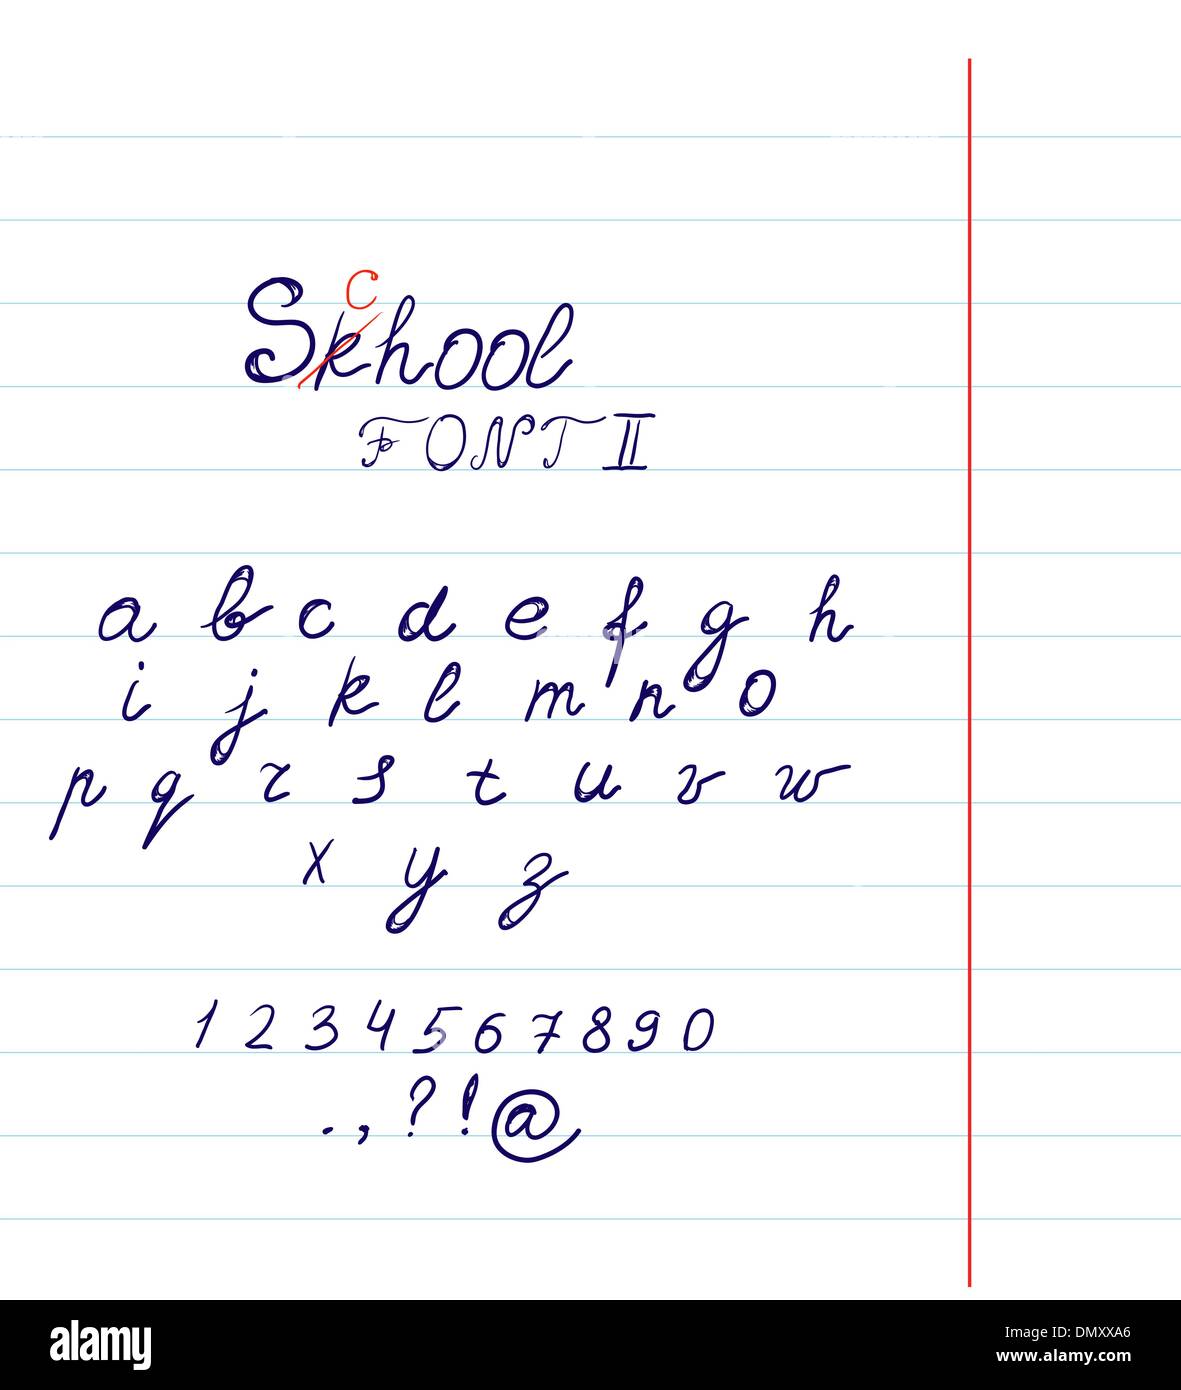 C
Skhool
FONT II
a b c d e f g h
i j k l m n o
p q r s t u v w
x y z
1 2 3 4 5 6 7 8 9 0
. , ? ! @
alamy
Image ID: DMXXA6
www.alamy.com